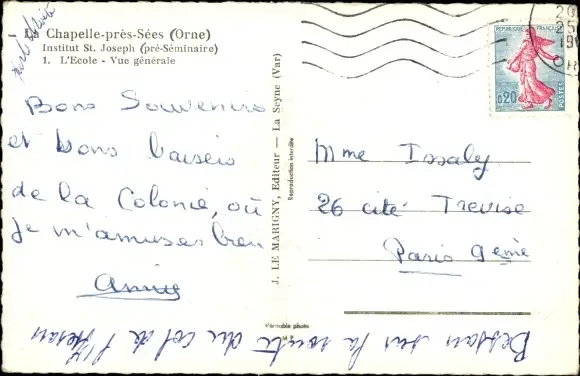 La Chapelle-près-Sées (Orne)
Institut St. Joseph (pré-Séminaire)
1. L'Ecole - Vue générale
Bons Souvenirs
et bons baisers
de la Colonie, où
je m'amuse bien
J. LE MARIGNY, Editeur — La Seyne (Var)
Reproduction interdite
Véritable photo
REPUBLIQUE FRANÇAISE
0,20
POSTES
Mme Issaly
26 cité Trevise
Paris 9eme
Bessans sur la route du col de l'Iseran